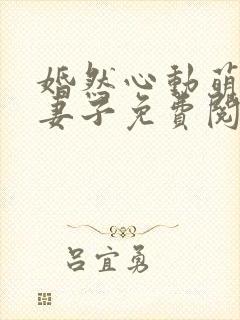 婚然心動萌
妻子免費閱
吕宜勇